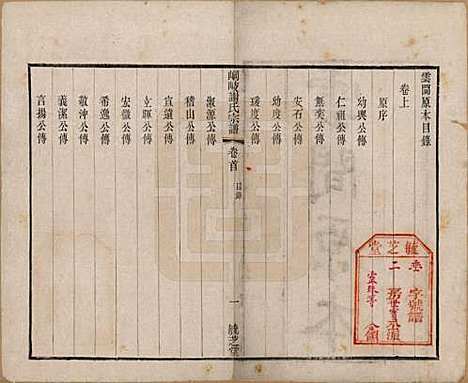 雲閣原本目錄
卷上
原序
幼輿公傳
仁祖公傳
無奕公傳
安石公傳
幼度公傳
瑗度公傳
峒岐謝氏宗譜
卷首
目錄
一
淑源公傳
稽山公傳
宣遠公傳
立暉公傳
宏微公傳
希逸公傳
敬沖公傳
義潔公傳
言揚公傳
芝
堂
二
字號譜